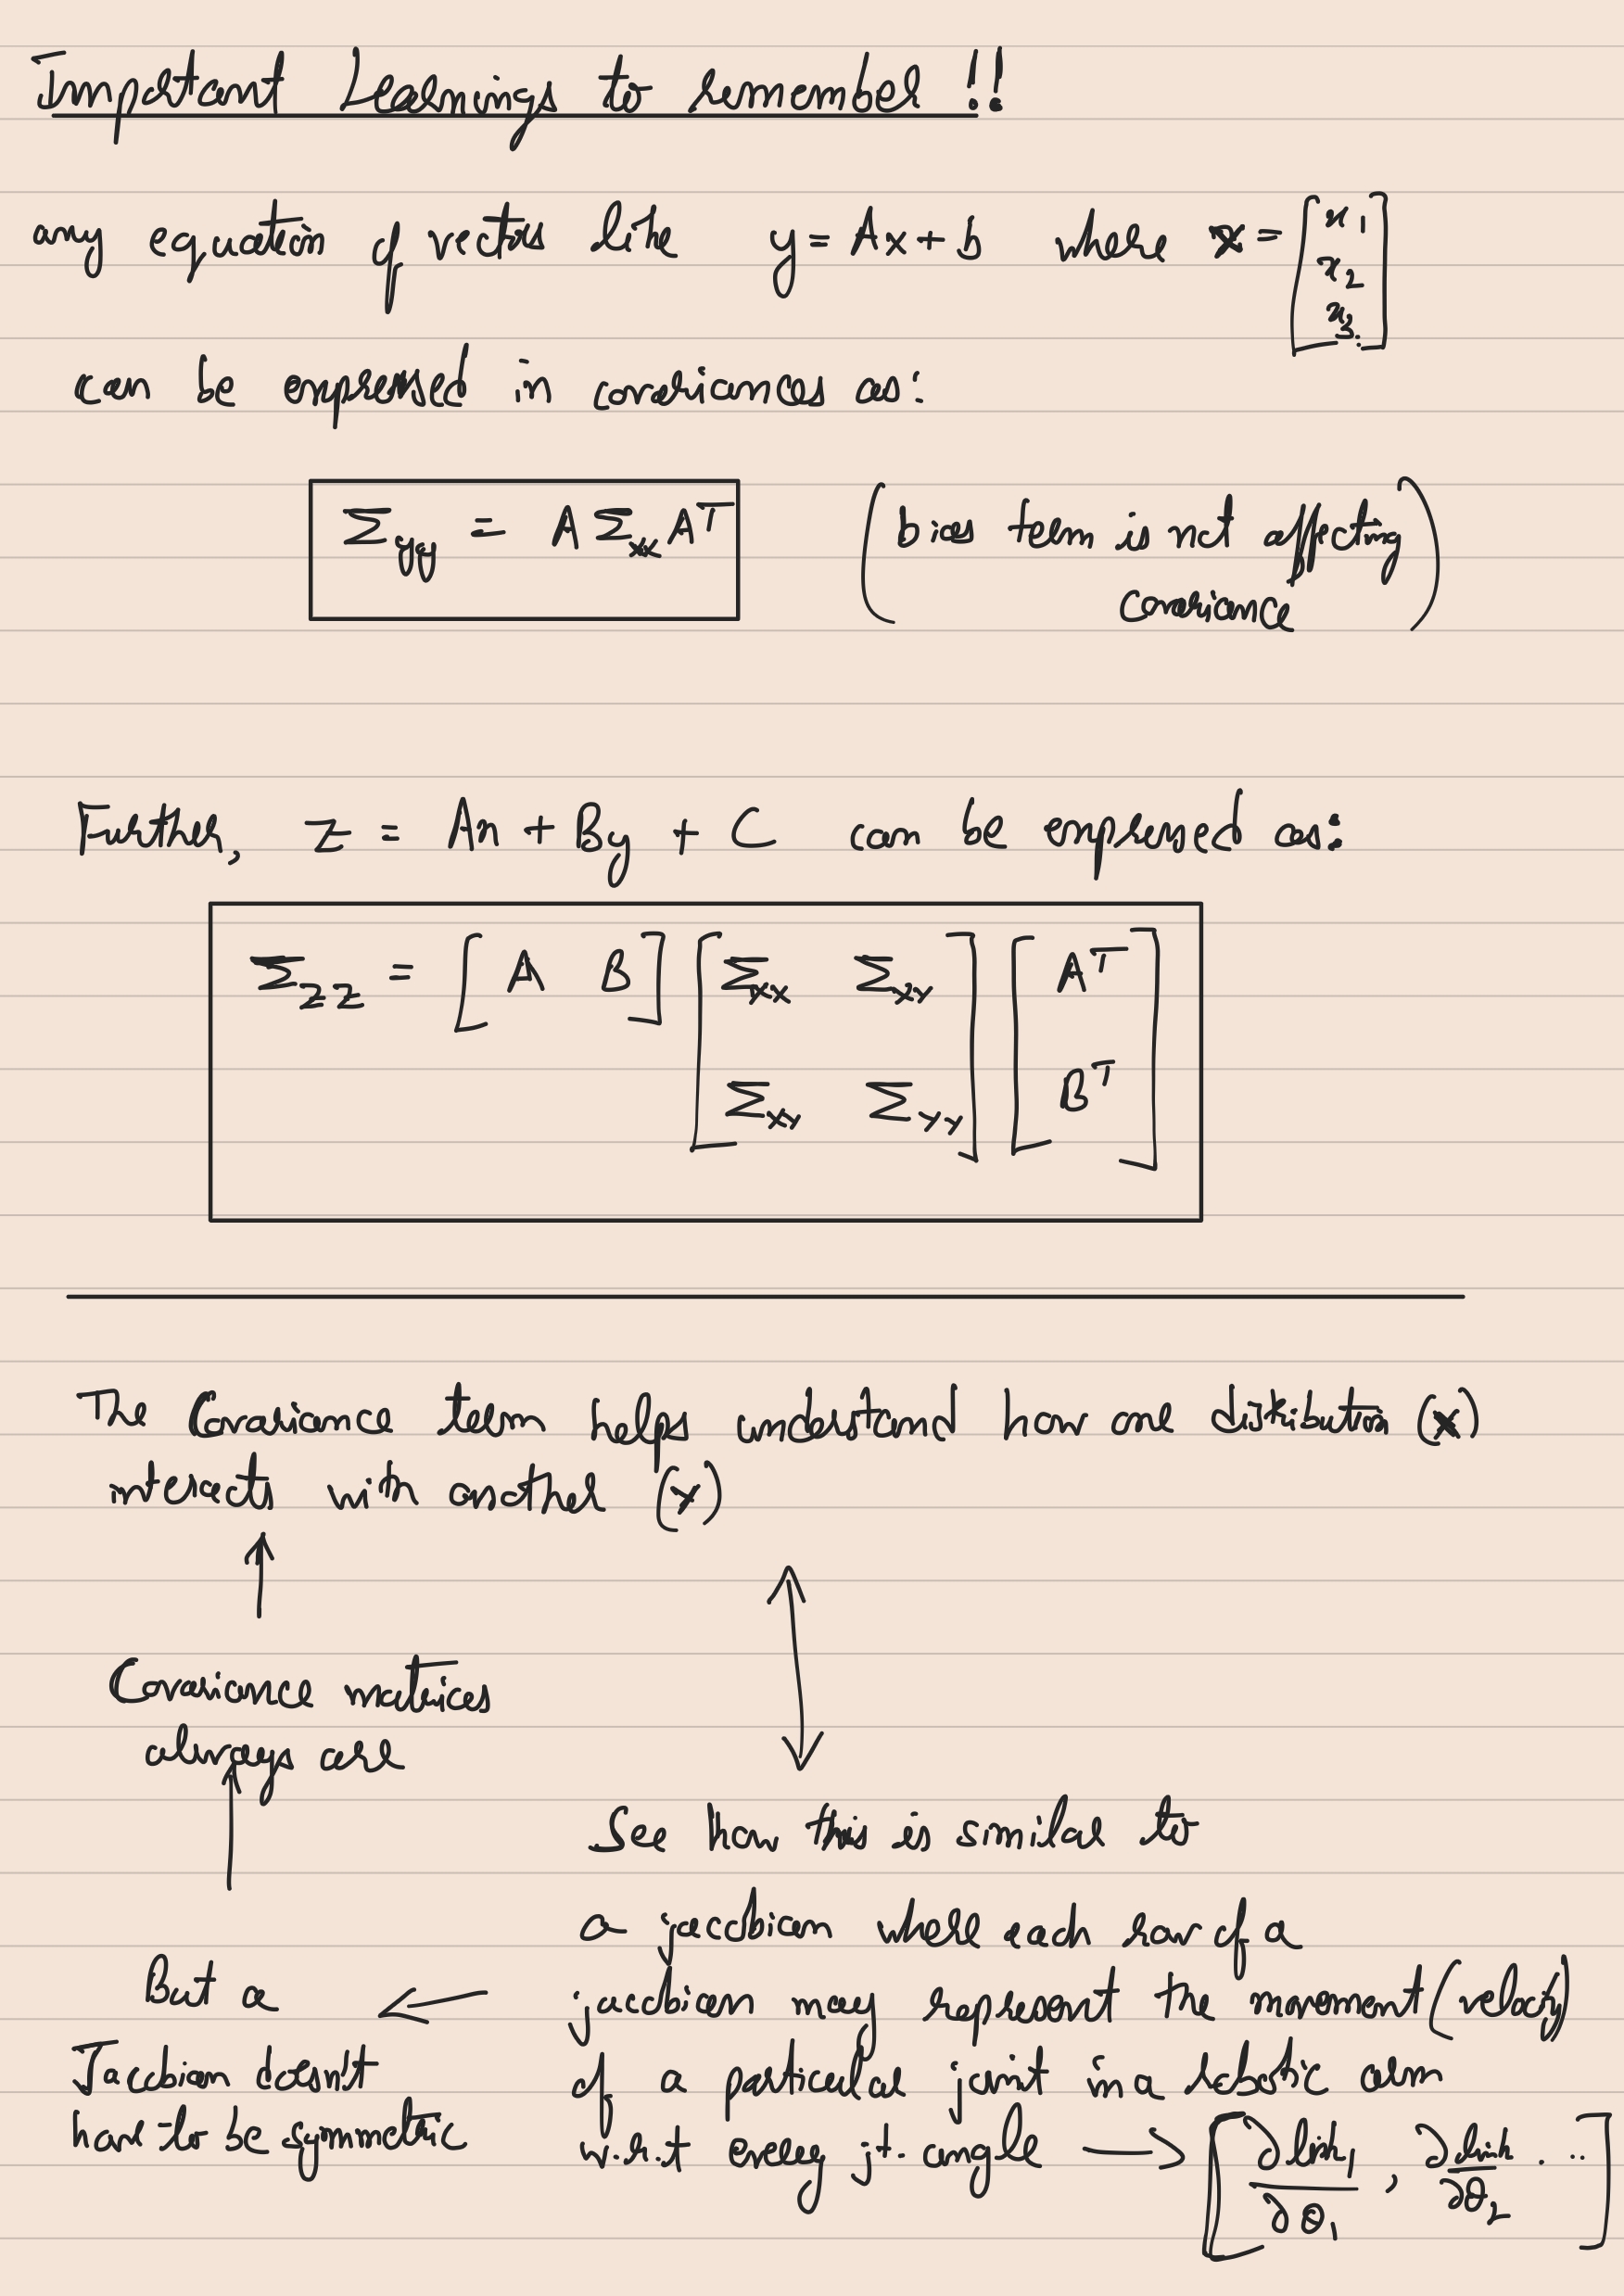 Important Learnings to remember !!
any equation of vectors like y = Ax + b where x = [x1 x2 x3 :]
can be expressed in covariances as:
Σyy = A Σxx A^T (bias term is not affecting
covariance)
Further, z = Ax + By + C can be expressed as:
Σzz = [A B] [Σxx Σxy [A^T
Σxy Σyy] B^T]
The Covariance term helps understand how one distribution (x)
interacts with another (y)
Covariance matrices
always are
See how this is similar to
a jacobian where each row of a
But a ← jacobian may represent the movement (velocity)
Jacobian doesnt of a particular joint in a robotic arm
have to be symmetric w.r.t every jt. angle → [∂link1/∂θ1, ∂link/∂θ2 ...]